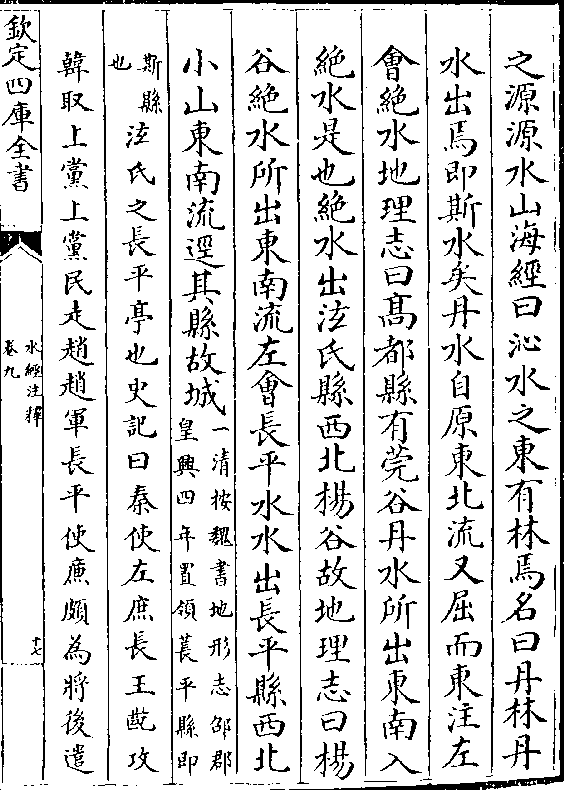 之源源水山海經曰沁水之東有林焉名曰丹林丹
水出焉即斯水矣丹水自原東北流又屈而東注左
會絶水地理志曰髙都縣有莞谷丹水所出東南入
絶水是也絶水出泫氏縣西北楊谷故地理志曰楊
谷絶水所出東南流左會長平水水出長平縣西北
小山東南流逕其縣故城一清按魏書地形志郃郡
皇興四年置領萇平縣即
斯縣
也泫氏之長平亭也史記曰秦使左庶長王齕攻
韓取上黨上黨民走趙趙軍長平使㢘頗為將後遣
欽定四庫全書
水經注釋
卷九
十七